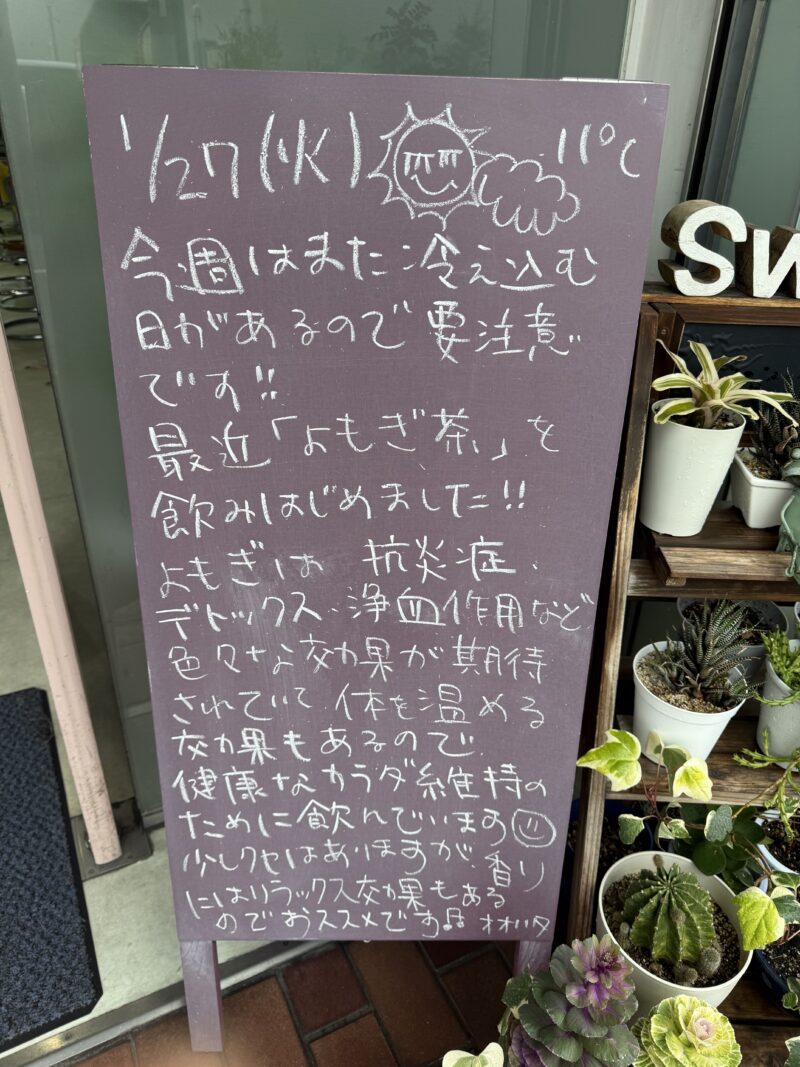 1/27(火) 11°C
今週はまた冷え込む
日があるので要注意
です!!
最近「よもぎ茶」を
飲みはじめました!!
よもぎは 抗炎症、
デトックス、浄血作用など
色々な効果が期待
されていて、体を温める
効果もあるので、
健康なカラダ維持の
ために飲んでいます
少しクセはありますが、香り
にはリラックス効果もある
のでおススメです
Sw